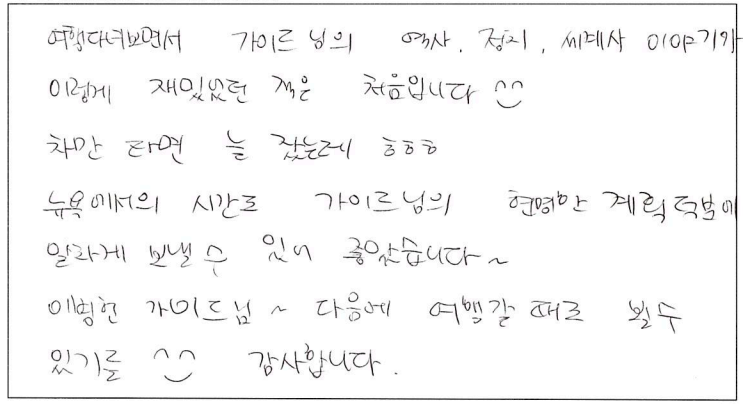 여행다녀보면서 가이드님의 역사, 정치, 세계사 이야기가
이렇게 재밌었던 적은 처음입니다 ^^
차만 타면 늘 잤는데 ㅎㅎㅎ
뉴욕에서의 시간도 가이드님의 현명한 계획 덕분에
알차게 보낼 수 있어 좋았습니다~
이형헌 가이드님~ 다음에 여행갈 때도 뵐수
있기를 ^^ 감사합니다.